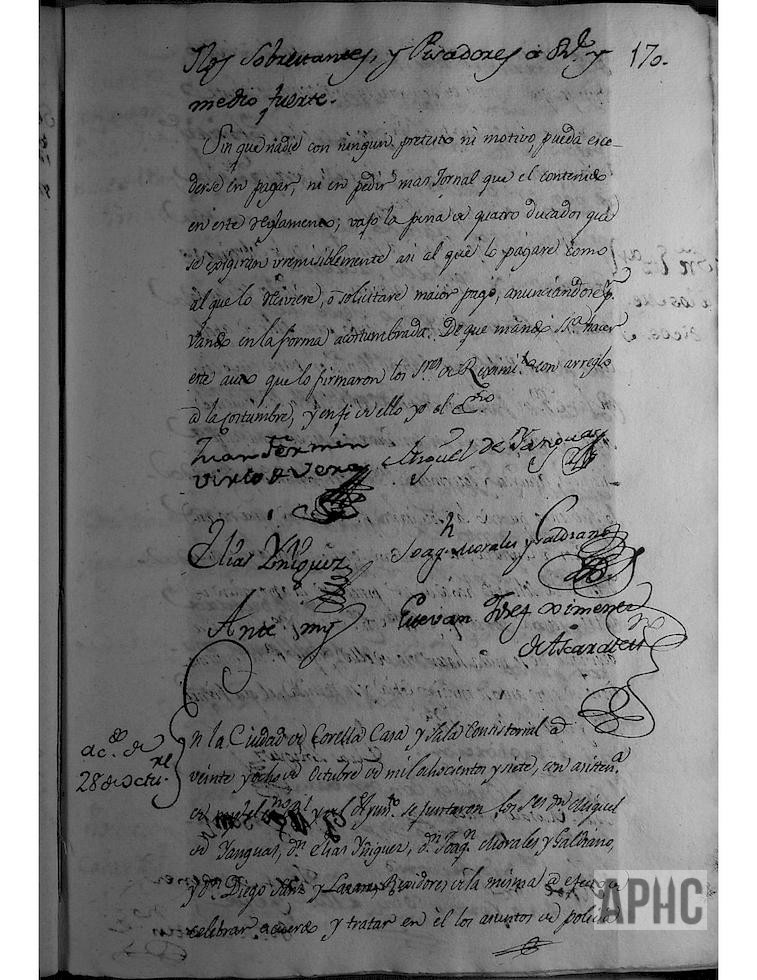 170.
Nes Sobrestantes, y Pisadores a 8 r.l y
medio fuerte.
Sin que nadie con ningun pretesto ni motivo, pueda esce-
derse en pagar, ni en pedir mas Jornal que el contenido
en este reglamento, vajo la pena de quatro ducados que
se exigiran irremisiblemente asi al que lo pagare como
al que lo reciviere, ó solicitare maior pago, anunciandose p.r
vando en la forma acostumbrada. De que mando S.S.a hacer
este auto que lo firmaron los S.res de Regimi.to con arreglo
a la costumbre, y en fe de ello yo el Es.no
Juan Fermin
Virto de Vera
Miguel de Yanguas
Elias Yñiguez
Joaq.n Morales y Galdiano
Ante my
Estevan Jseq Ximenez
de Ascarate
ac.do de
28 de Octu.re
En la Ciudad de Corella Casa y Sala Consistorial a
veinte y ocho de Octubre de mil ochocientos y siete, con asisten.a
de y el Ayun.to se juntaron los S.res D.n Miguel
de Yanguas, D.n Elias Yñiguez, D.n Joaq.n Morales y Galdiano,
y D.n Diego Sanz y Regidores de la misma a efecto de
celebrar acuerdo y tratar en él los asuntos de policia
APHC